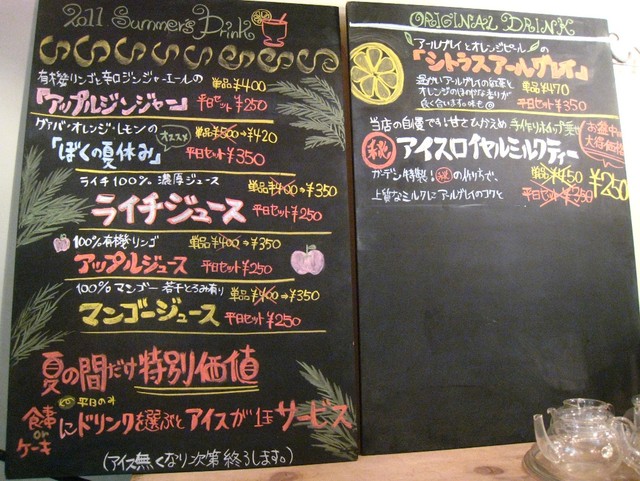 2011 Summer's Drink
有機リンゴと辛口ジンジャーエールの
『アップルジンジャー』
単品¥400
平日セット¥250
グァバ・オレンジ・レモンの
オススメ
「ぼくの夏休み」
単品¥500⇒¥420
平日セット¥350
ライチ100% 濃厚ジュース
ライチジュース
単品¥400⇒¥350
平日セット¥250
100%有機リンゴ
アップルジュース
単品¥400⇒¥350
平日セット¥250
100%マンゴー 若干とろみ有り
マンゴージュース
単品¥400⇒¥350
平日セット¥250
夏の間だけ特別価値
平日のみ
食事orケーキにドリンクを選ぶとアイスが1玉サービス
(アイス無くなり次第終ろします。)
ORIGINAL DRINK
アールグレイとオレンジピールの
「シトラスアールグレイ」
温かいアールグレイの紅茶と
オレンジのほのかな香りが
良く合います。
単品¥470
平日セット¥350
当店の自慢です!甘さひかえめ 手作りホイップ
お盆中は大特価格
アイスロイヤルミルクティー
ガーデン特製!の作り方で、
上質なミルクにアールグレイのコクと
単品¥450
平日セット¥350
¥250